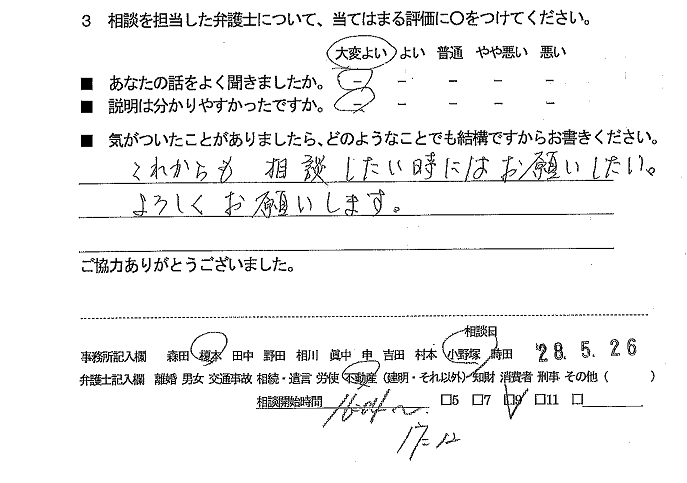 3 相談を担当した弁護士について、当てはまる評価に○をつけてください。
大変よい よい 普通 やや悪い 悪い
■ あなたの話をよく聞きましたか。 － － － － －
■ 説明は分かりやすかったですか。 － － － － －
■ 気がついたことがありましたら、どのようなことでも結構ですからお書きください。
これからも 相談したい時にはお願いしたい。
よろしくお願いします。
ご協力ありがとうございました。
相談日
事務所記入欄 森田 榎本 田中 野田 相川 眞中 申 吉田 村本 小野塚 時田 '28.5.26
弁護士記入欄 離婚 男女 交通事故 相続・遺言 労使 不動産 (建明・それ以外) 知財 消費者 刑事 その他 ( )
相談開始時間 16:04〜 □5 □7 □9 □11 □
17:12